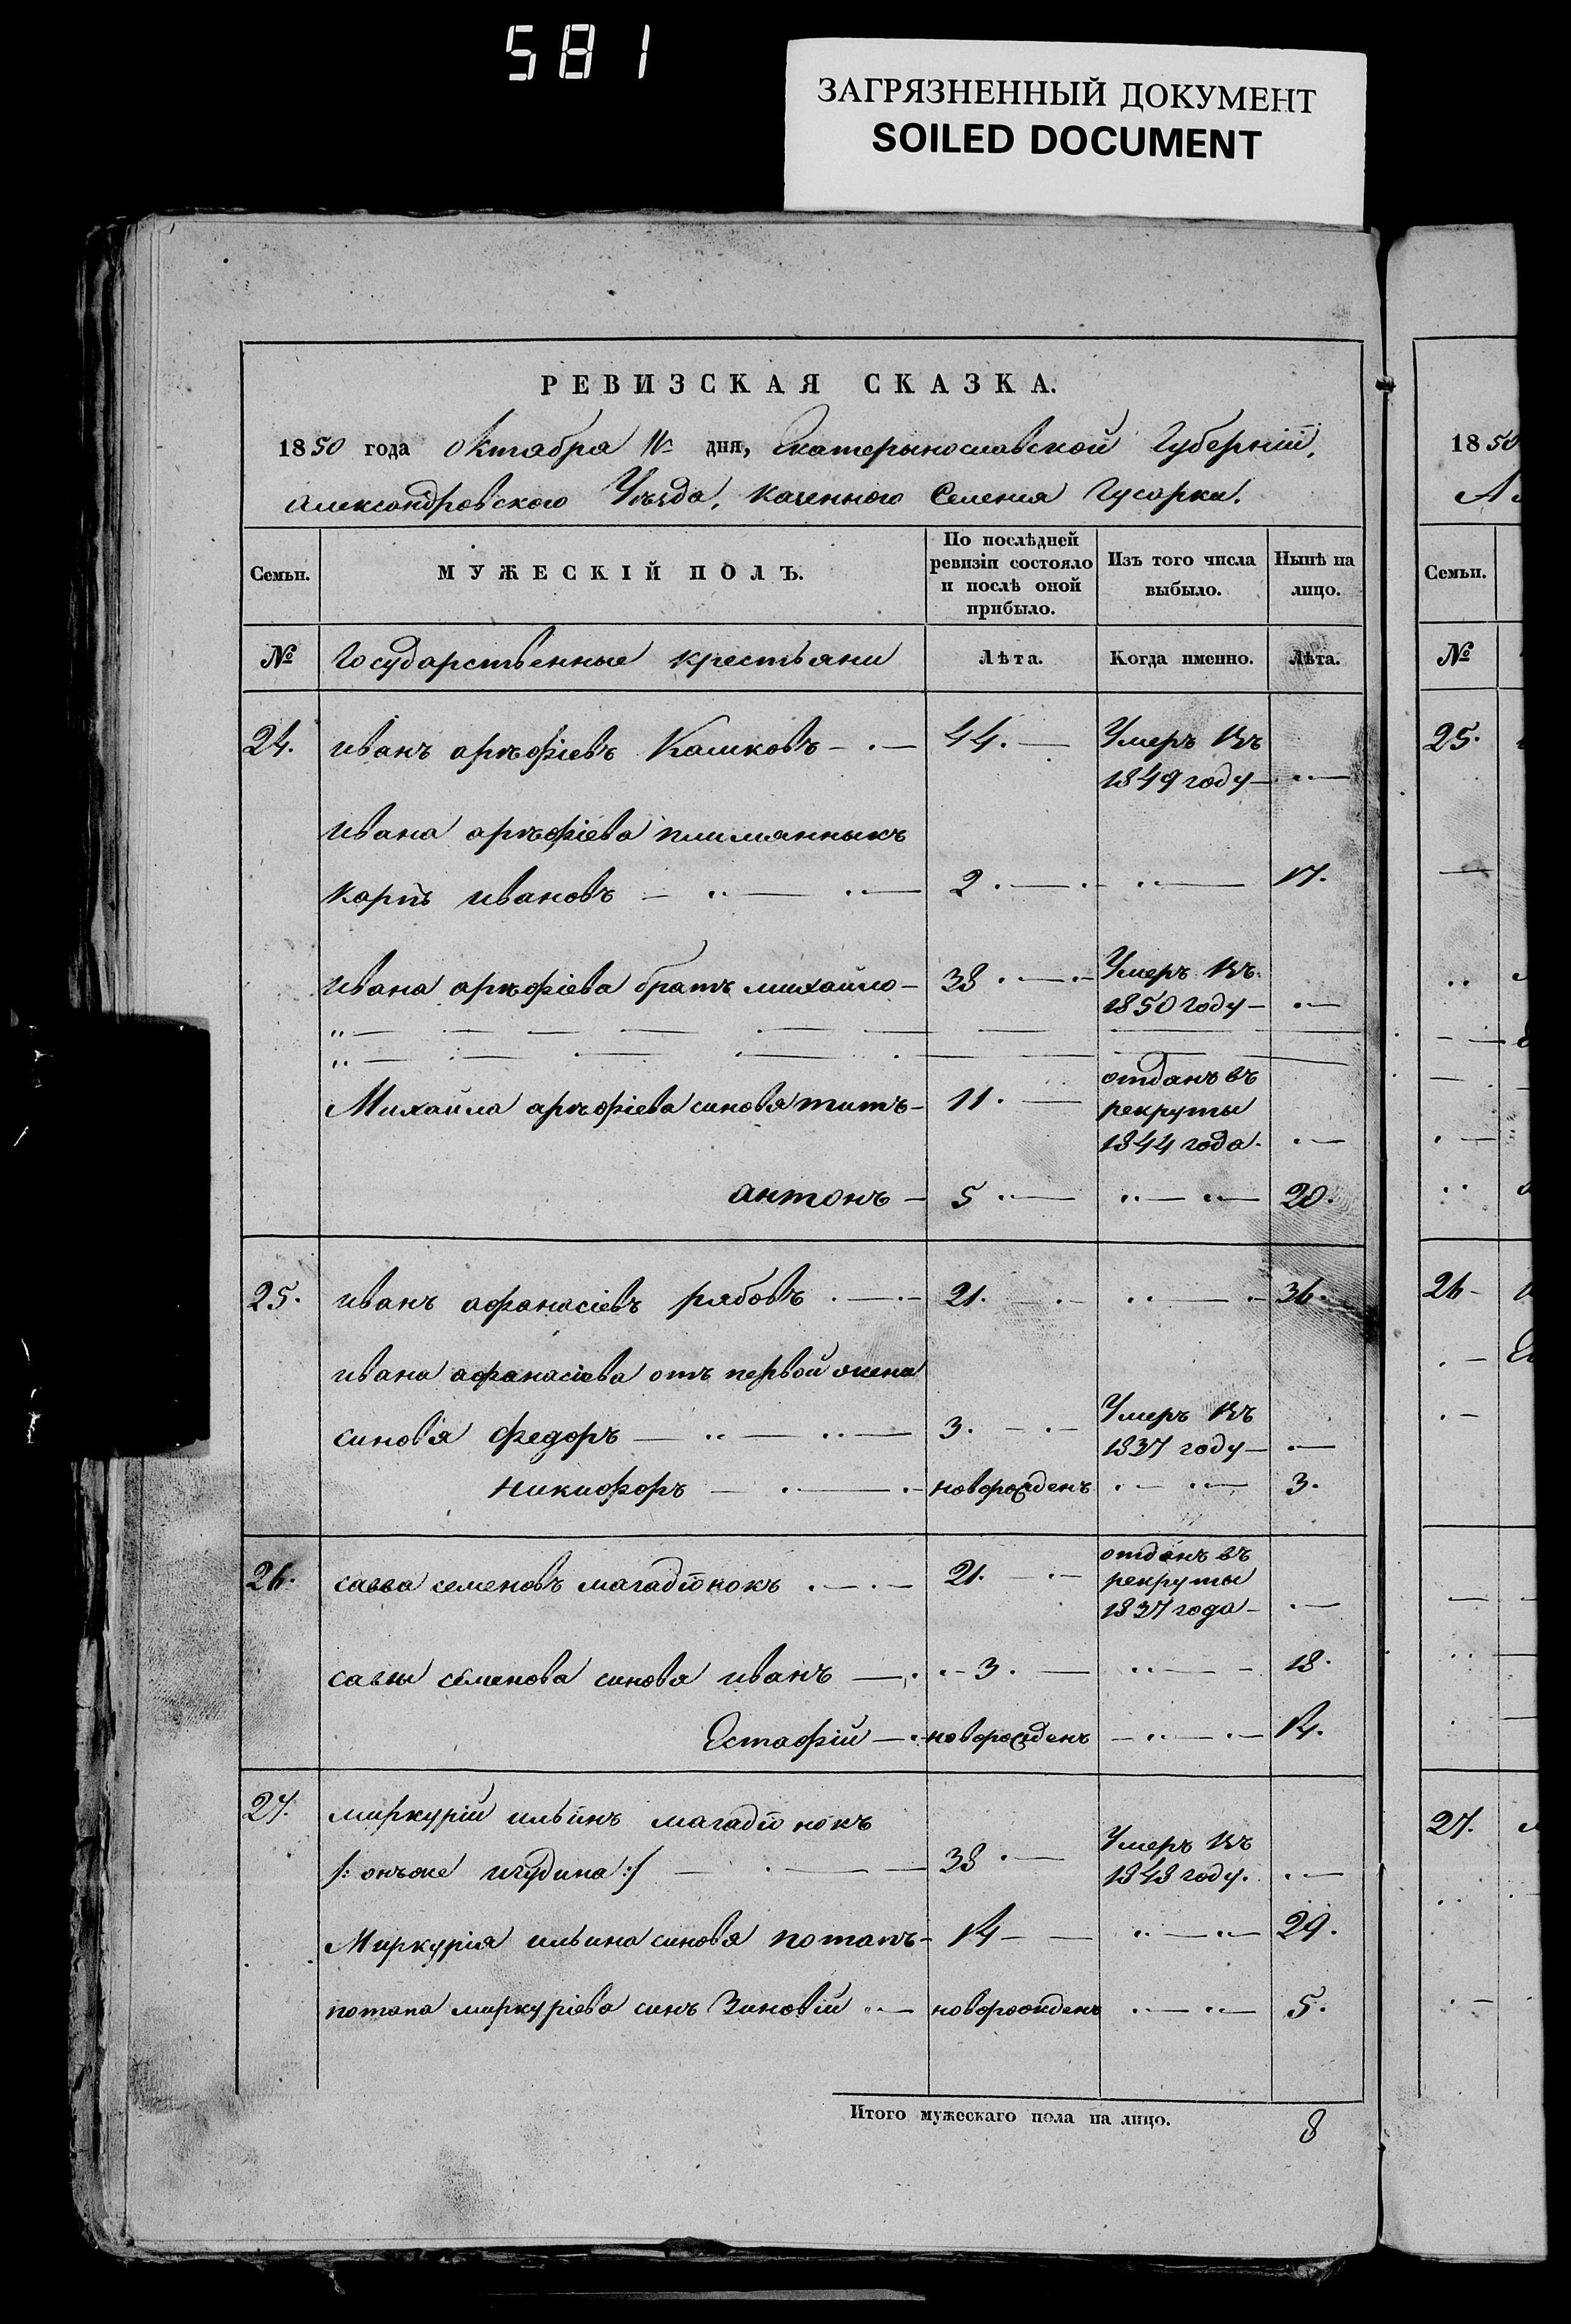 581
ЗАГРЯЗНЕННЫЙ ДОКУМЕНТ
SOILED DOCUMENT
РЕВИЗСКАЯ СКАЗКА.
1850 года октабра дня, Екатерынославской Губерніи,
Александровского Уѣзда, казенного Селения Гусарки.
Семьи. МУЖЕСКІЙ ПОЛЪ. По послѣдней ревизіи состояло и послѣ оной прибыло. Изъ того числа выбыло. Нынѣ на лицо.
№ Государственные крестьяни Лѣта. Когда именно. Лѣта.
24. иванъ арѣфіевъ Каликовъ 44. Умеръ Въ
1849 году
ивана арѣфіева плимянныкъ
карпъ ивановъ 2 17.
ивана арѣфіева братъ михайло 38 Умеръ Въ
1850 году
отданъ въ
Михайла арѣфіева синовя титъ 11. рекруты
1844 года.
антонъ 5 20.
25. иванъ афанасіевъ рябовъ 21. 36.
ивана афанасіева отъ первой жены
синовя федоръ 3. Умеръ Въ
1837 году
никифоръ новорожденъ 3.
26. савва семеновъ магадіонокъ 21. отданъ въ
рекруты
1837 года
савы семенова синовя иванъ 3. 18.
Естафій новорожденъ 14.
27. миркурій ильинъ магадіонокъ
/: онъже :/ 38 Умеръ Въ
1848 году.
Миркурія ильина синовя потапъ 14 29.
потапа миркуріева синъ Зиновій новорожденъ 5.
Итого мужескаго пола на лицо. 8
1850
А
Семьи.
№
25.
26
27.